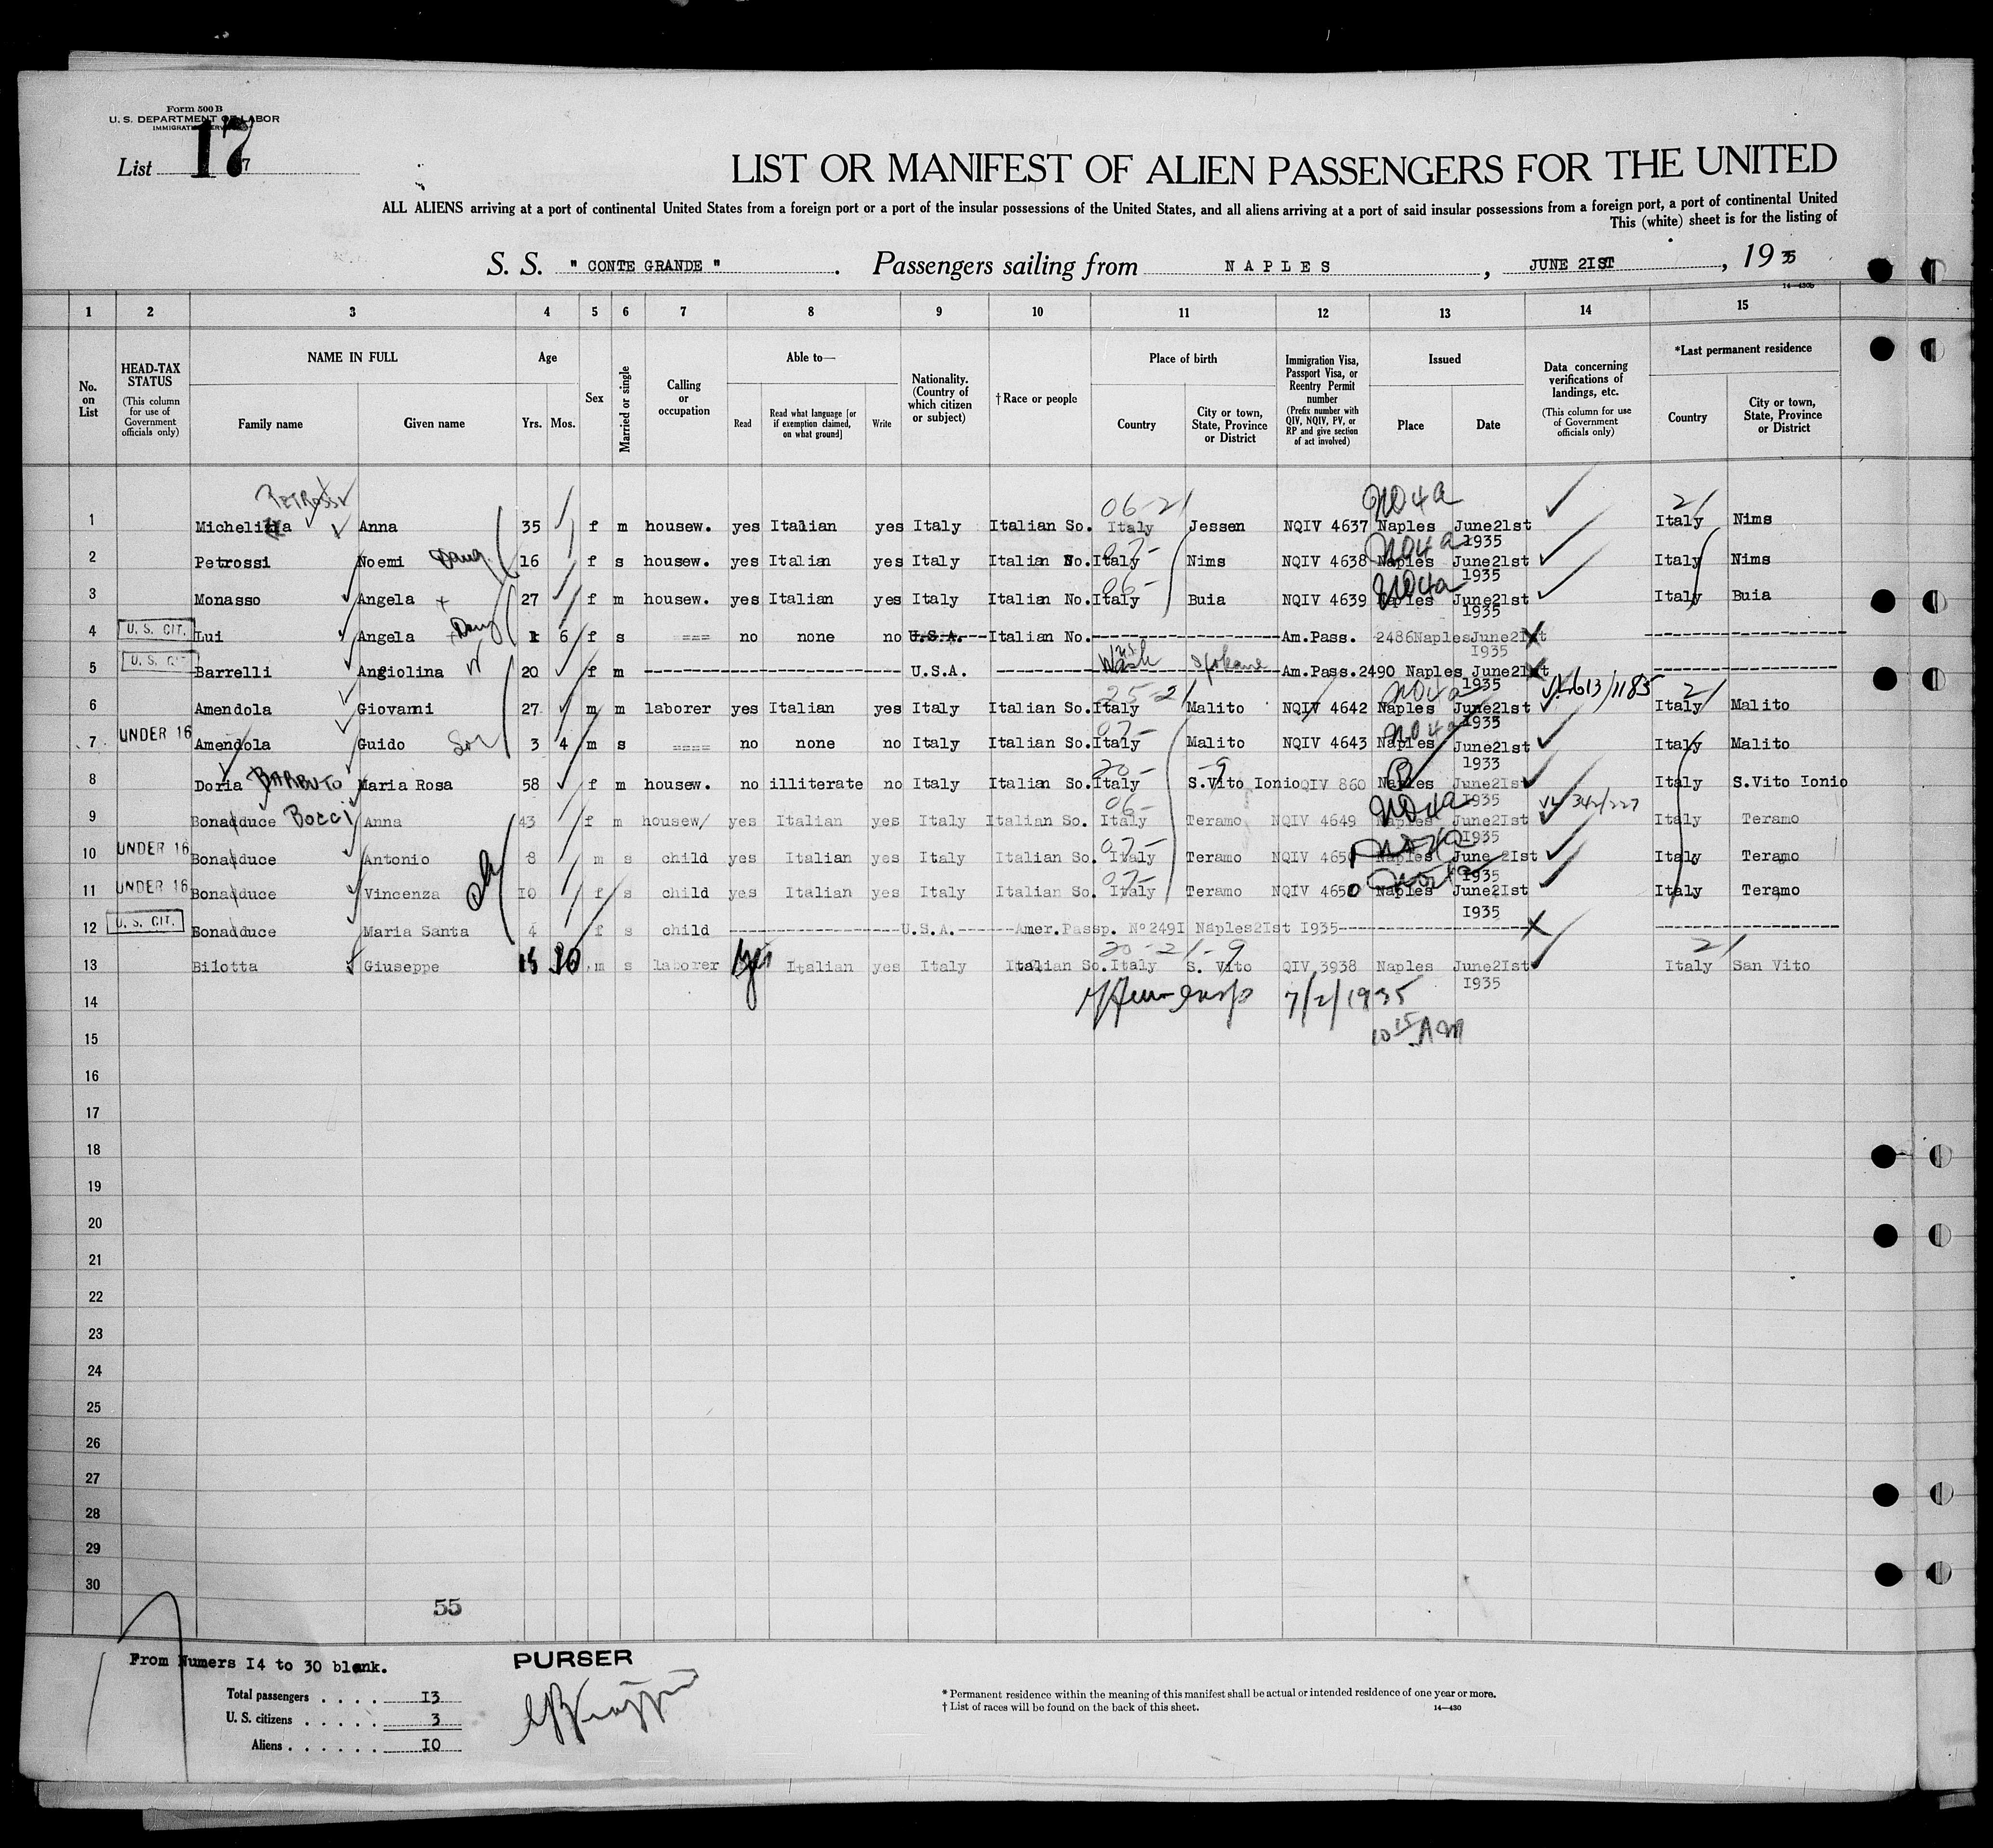 Form 500 B
U. S. DEPARTMENT OF LABOR
List 17
LIST OR MANIFEST OF ALIEN PASSENGERS FOR THE UNITED
ALL ALIENS arriving at a port of continental United States from a foreign port or a port of the insular possessions of the United States, and all aliens arriving at a port of said insular possessions from a foreign port, a port of continental United
This (white) sheet is for the listing of
S. S. " CONTE GRANDE " . Passengers sailing from NAPLES , JUNE 2IST , 19 35
14—430b
1 2 3 4 5 6 7 8 9 10 11 12 13 14 15
No. on List
HEAD-TAX STATUS (This column for use of Government officials only)
NAME IN FULL
Family name Given name
Age
Yrs. Mos.
Sex
Married or single
Calling or occupation
Able to—
Read Read what language [or if exemption claimed, on what ground] Write
Nationality. (Country of which citizen or subject)
†Race or people
Place of birth
Country City or town, State, Province or District
Immigration Visa, Passport Visa, or Reentry Permit number (Prefix number with QIV, NQIV, PV, or RP and give section of act involved)
Issued
Place Date
Data concerning verifications of landings, etc. (This column for use of Government officials only)
*Last permanent residence
Country City or town, State, Province or District
PETROSSI 06-21 NO4a 21
1 Anna 35 f m housew. yes Italian yes Italy Italian So. Italy Jessen NQIV 4637 Naples June21st 1935 Italy Nims
2 Petrossi Noemi Daug. 16 f s housew. yes Italian yes Italy Italian No. Italy Nims NQIV 4638 Naples June21st 1935 Italy Nims
3 Monasso Angela 27 f m housew. yes Italian yes Italy Italian No. Italy Buia NQIV 4639 Naples June21st 1935 Italy Buia
4 U. S. CIT. Lui Angela Daug 1 6 f s ==== no none no U.S.A. Italian No. Am.Pass. 2486 Naples June21st I935
5 U. S. CIT. Barrelli Angiolina W 20 f m U.S.A. Wash Spokane Am.Pass.2490 Naples June21st 1935
6 Amendola Giovanni 27 m m laborer yes Italian yes Italy Italian So. 25-21 Italy Malito NQIV 4642 Naples June21st 1935 21 Italy Malito
7 UNDER 16 Amendola Guido Son 3 4 m s ==== no none no Italy Italian So. Italy Malito NQIV 4643 Naples June21st 1933 Italy Malito
8 Doria BARBUTO Maria Rosa 58 f m housew. no illiterate no Italy Italian So. Italy S.Vito Ionio QIV 860 Naples June2Ist I935 Italy S.Vito Ionio
9 Bonadduce BOCCI Anna 43 f m housew/ yes Italian yes Italy Italian So. Italy Teramo NQIV 4649 Naples June2Ist I935 342/227 Italy Teramo
10 UNDER 16 Bonadduce Antonio 8 m s child yes Italian yes Italy Italian So. Italy Teramo NQIV 465 Naples June 2Ist I935 Italy Teramo
11 UNDER 16 Bonadduce Vincenza IO f s child yes Italian yes Italy Italian So. Italy Teramo NQIV 4650 Naples June2Ist I935 Italy Teramo
12 U. S. CIT. Bonadduce Maria Santa 4 f s child U.S.A. Amer.Passp. Nº249I Naples2Ist I935
13 Bilotta Giuseppe 15 10 m s laborer yes Italian yes Italy Italian So. 20-21-9 Italy S. Vito QIV 3938 Naples June2Ist I935 21 Italy San Vito
14 7/2/1935
15 10 15 AM
16
17
18
19
20
21
22
23
24
25
26
27
28
29
30
55
From Numers I4 to 30 blank.
PURSER
Total passengers . . . . I3
U. S. citizens . . . . . 3
Aliens . . . . . . IO
* Permanent residence within the meaning of this manifest shall be actual or intended residence of one year or more.
† List of races will be found on the back of this sheet. 14—430